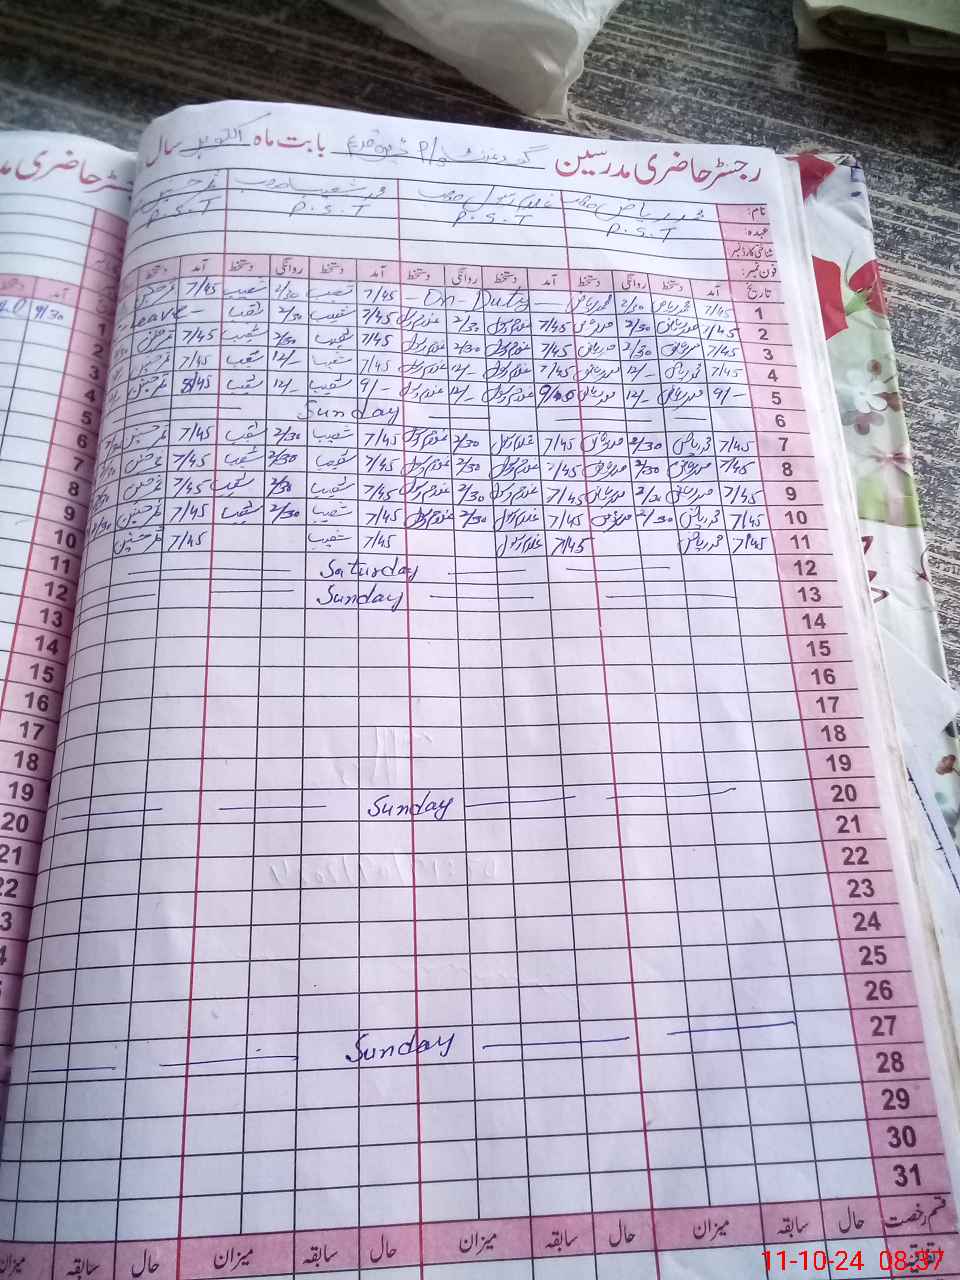 رجسٹر حاضری مدرسین گورنمنٹ P/S بابت ماہ اکتوبر سال
نام: محمد ریاض صاحب غلام رسول صاحب محمد شعیب صاحب
عہدہ: P.S.T P.S.T P.S.T P.S.T
شناختی کارڈ نمبر
فون نمبر:
تاریخ آمد دستخط روانگی دستخط آمد دستخط روانگی دستخط آمد دستخط روانگی دستخط آمد دستخط
1 7/45 محمد ریاض 2/30 محمد ریاض — On — Duty — 7/45 شعیب 2/30 شعیب 7/45
2 7/45 محمد ریاض 2/30 محمد ریاض 7/45 غلام رسول 2/30 غلام رسول 7/45 شعیب 2/30 شعیب Leave -
3 7/45 محمد ریاض 2/30 محمد ریاض 7/45 غلام رسول 2/30 غلام رسول 7/45 شعیب 2/30 شعیب 7/45
4 7/45 محمد ریاض 12/- محمد ریاض 7/45 غلام رسول 12/- غلام رسول 7/45 شعیب 12/- شعیب 7/45
5 9/- محمد ریاض 12/- محمد ریاض غلام رسول 12/- غلام رسول 9/- شعیب 12/- شعیب 8/45
6 Sunday
7 7/45 محمد ریاض 2/30 محمد ریاض 7/45 غلام رسول 2/30 غلام رسول 7/45 شعیب 2/30 شعیب 7/45
8 7/45 محمد ریاض 2/30 محمد ریاض 7/45 غلام رسول 2/30 غلام رسول 7/45 شعیب 2/30 شعیب 7/45
9 7/45 محمد ریاض 2/30 محمد ریاض 7/45 غلام رسول 2/30 غلام رسول 7/45 شعیب 2/30 شعیب 7/45
10 7/45 محمد ریاض 2/30 محمد ریاض 7/45 غلام رسول 2/30 غلام رسول 7/45 شعیب 2/30 شعیب 7/45
11 7/45 محمد ریاض 7/45 غلام رسول 7/45 شعیب 7/45
12 Saturday
13 Sunday
14
15
16
17
18
19
20 Sunday
21
22
23
24
25
26
27 Sunday
28
29
30
31
قسم رخصت حال سابقہ میزان حال سابقہ میزان حال سابقہ میزان حال سابقہ میزان
اتفاقیہ
رجسٹر حاضری
آمد
9/30
1
2
3
4
5
6
7
8
9
10
11
12
13
14
15
16
17
18
19
20
21
11-10-24 08:37